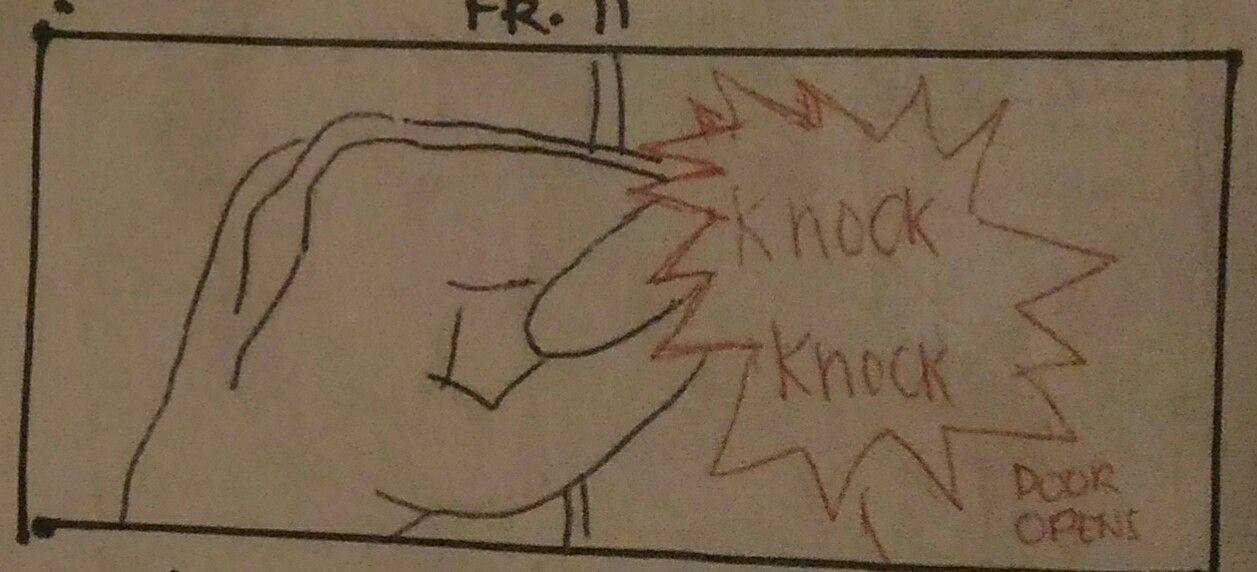 FR. 11
Knock
Knock
DOOR
OPENS